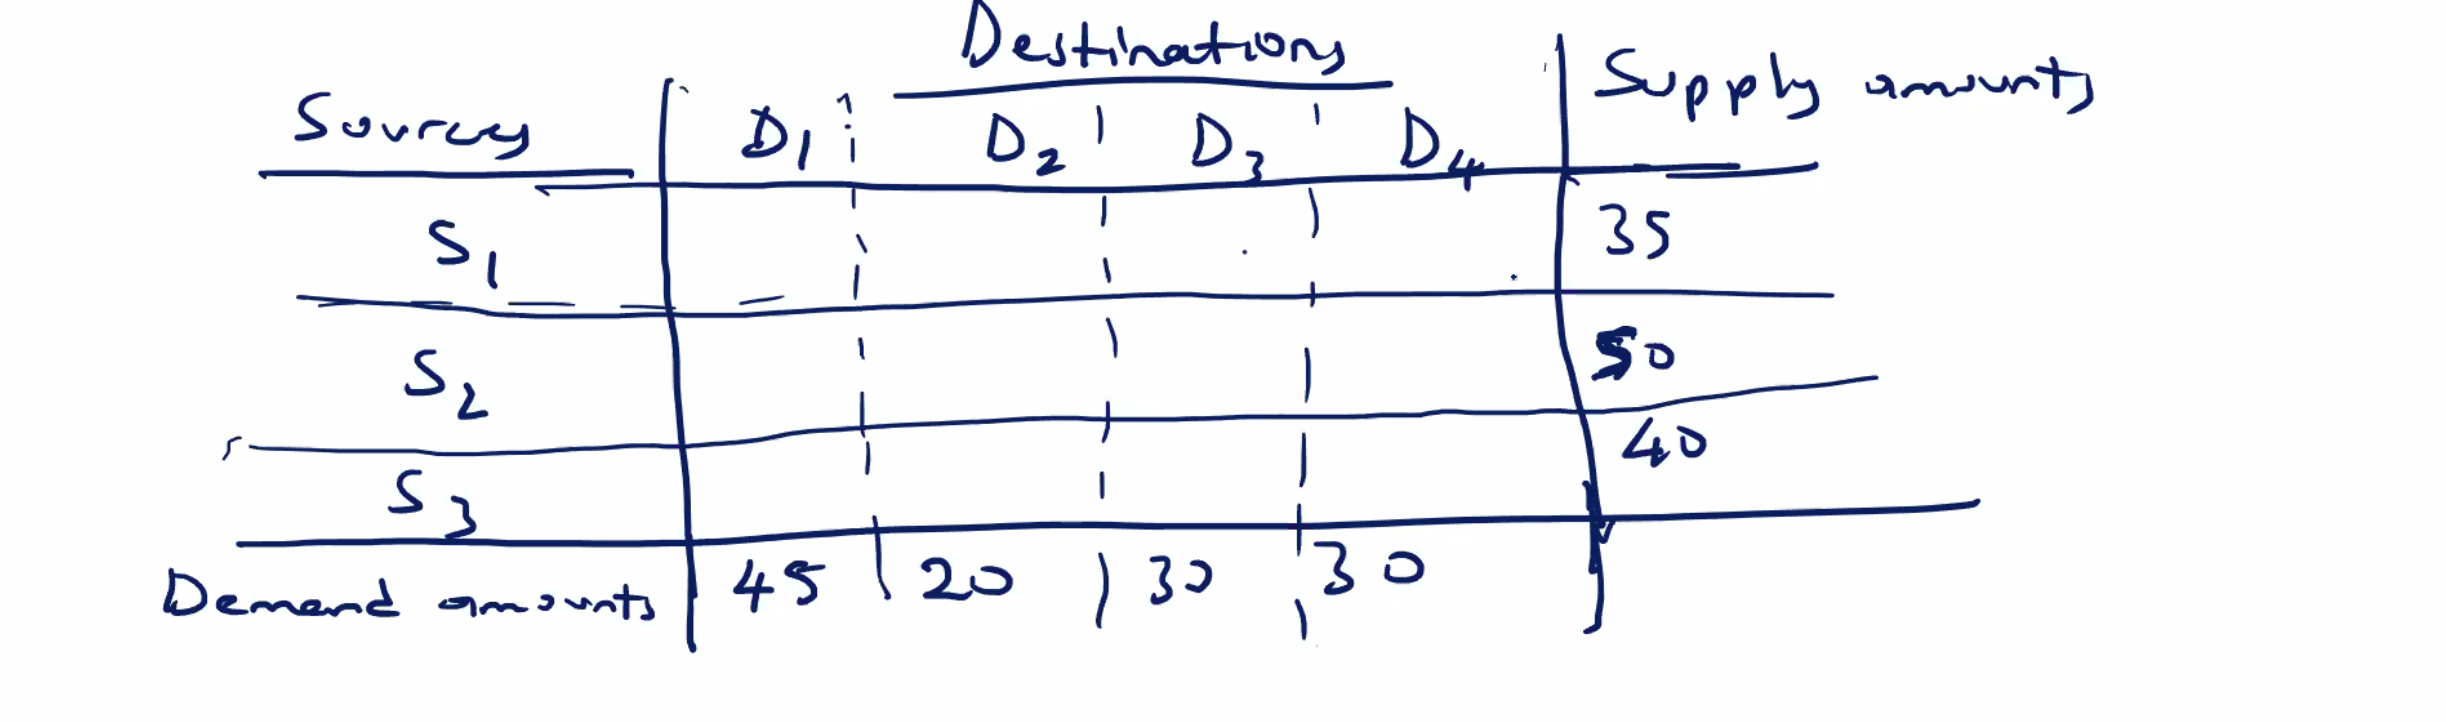 Destinations
Sources D1 D2 D3 D4 Supply amounts
S1 35
S2 50
S3 40
Demand amounts 45 20 30 30